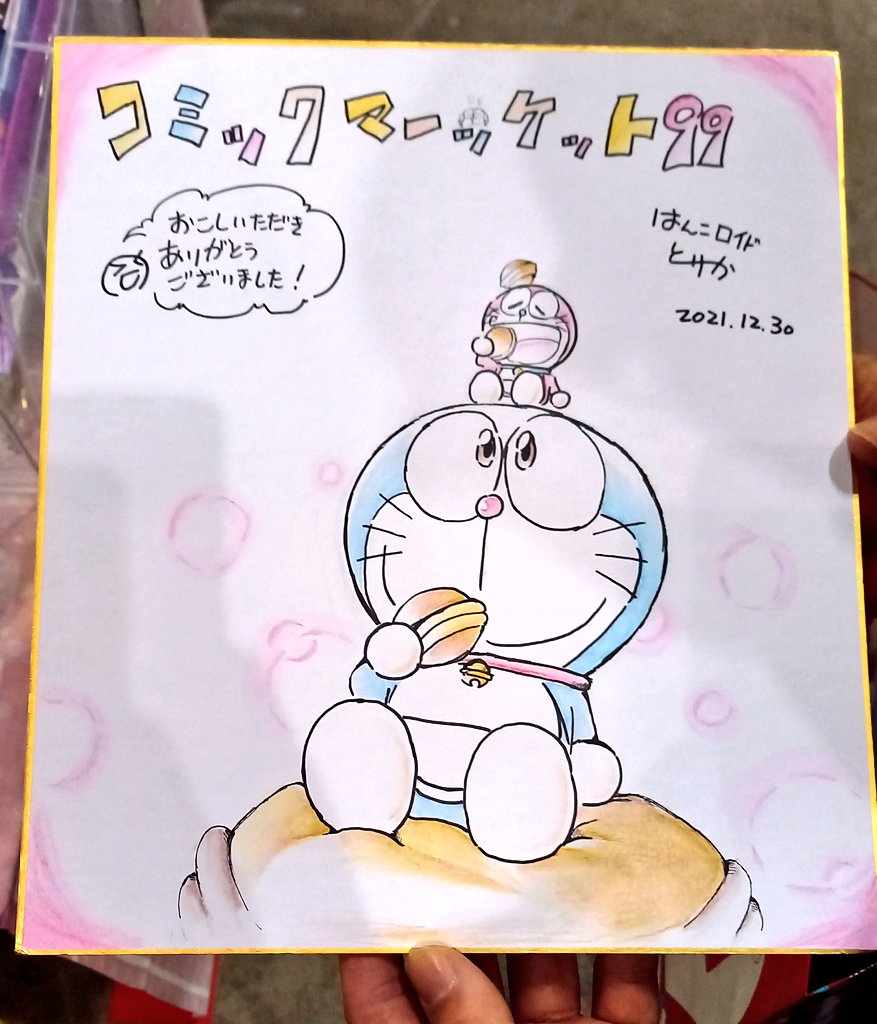 コミックマーケット99
おこしいただき
ありがとう
ございました!
はんこロイド
とりか
2021.12.30